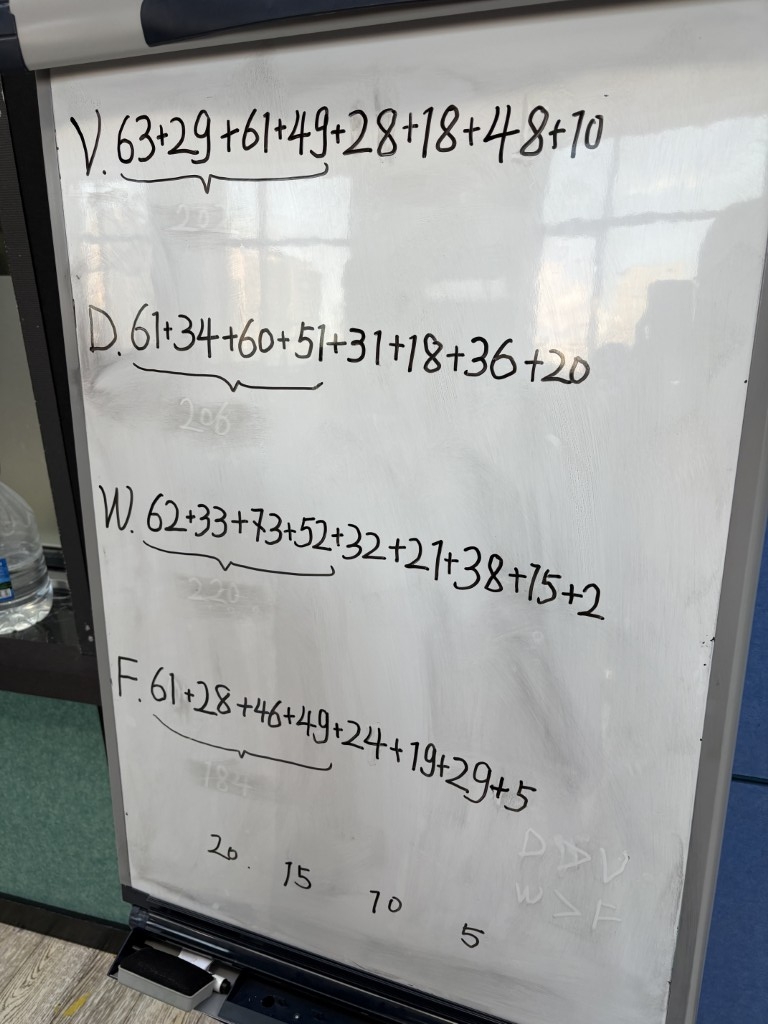 V. 63+29+61+49+28+18+48+10
202
D. 61+34+60+51+31+18+36+20
206
W. 62+33+73+52+32+21+38+15+2
220
F. 61+28+46+49+24+19+29+5
184
D D V
W > F
20. 15 10 5